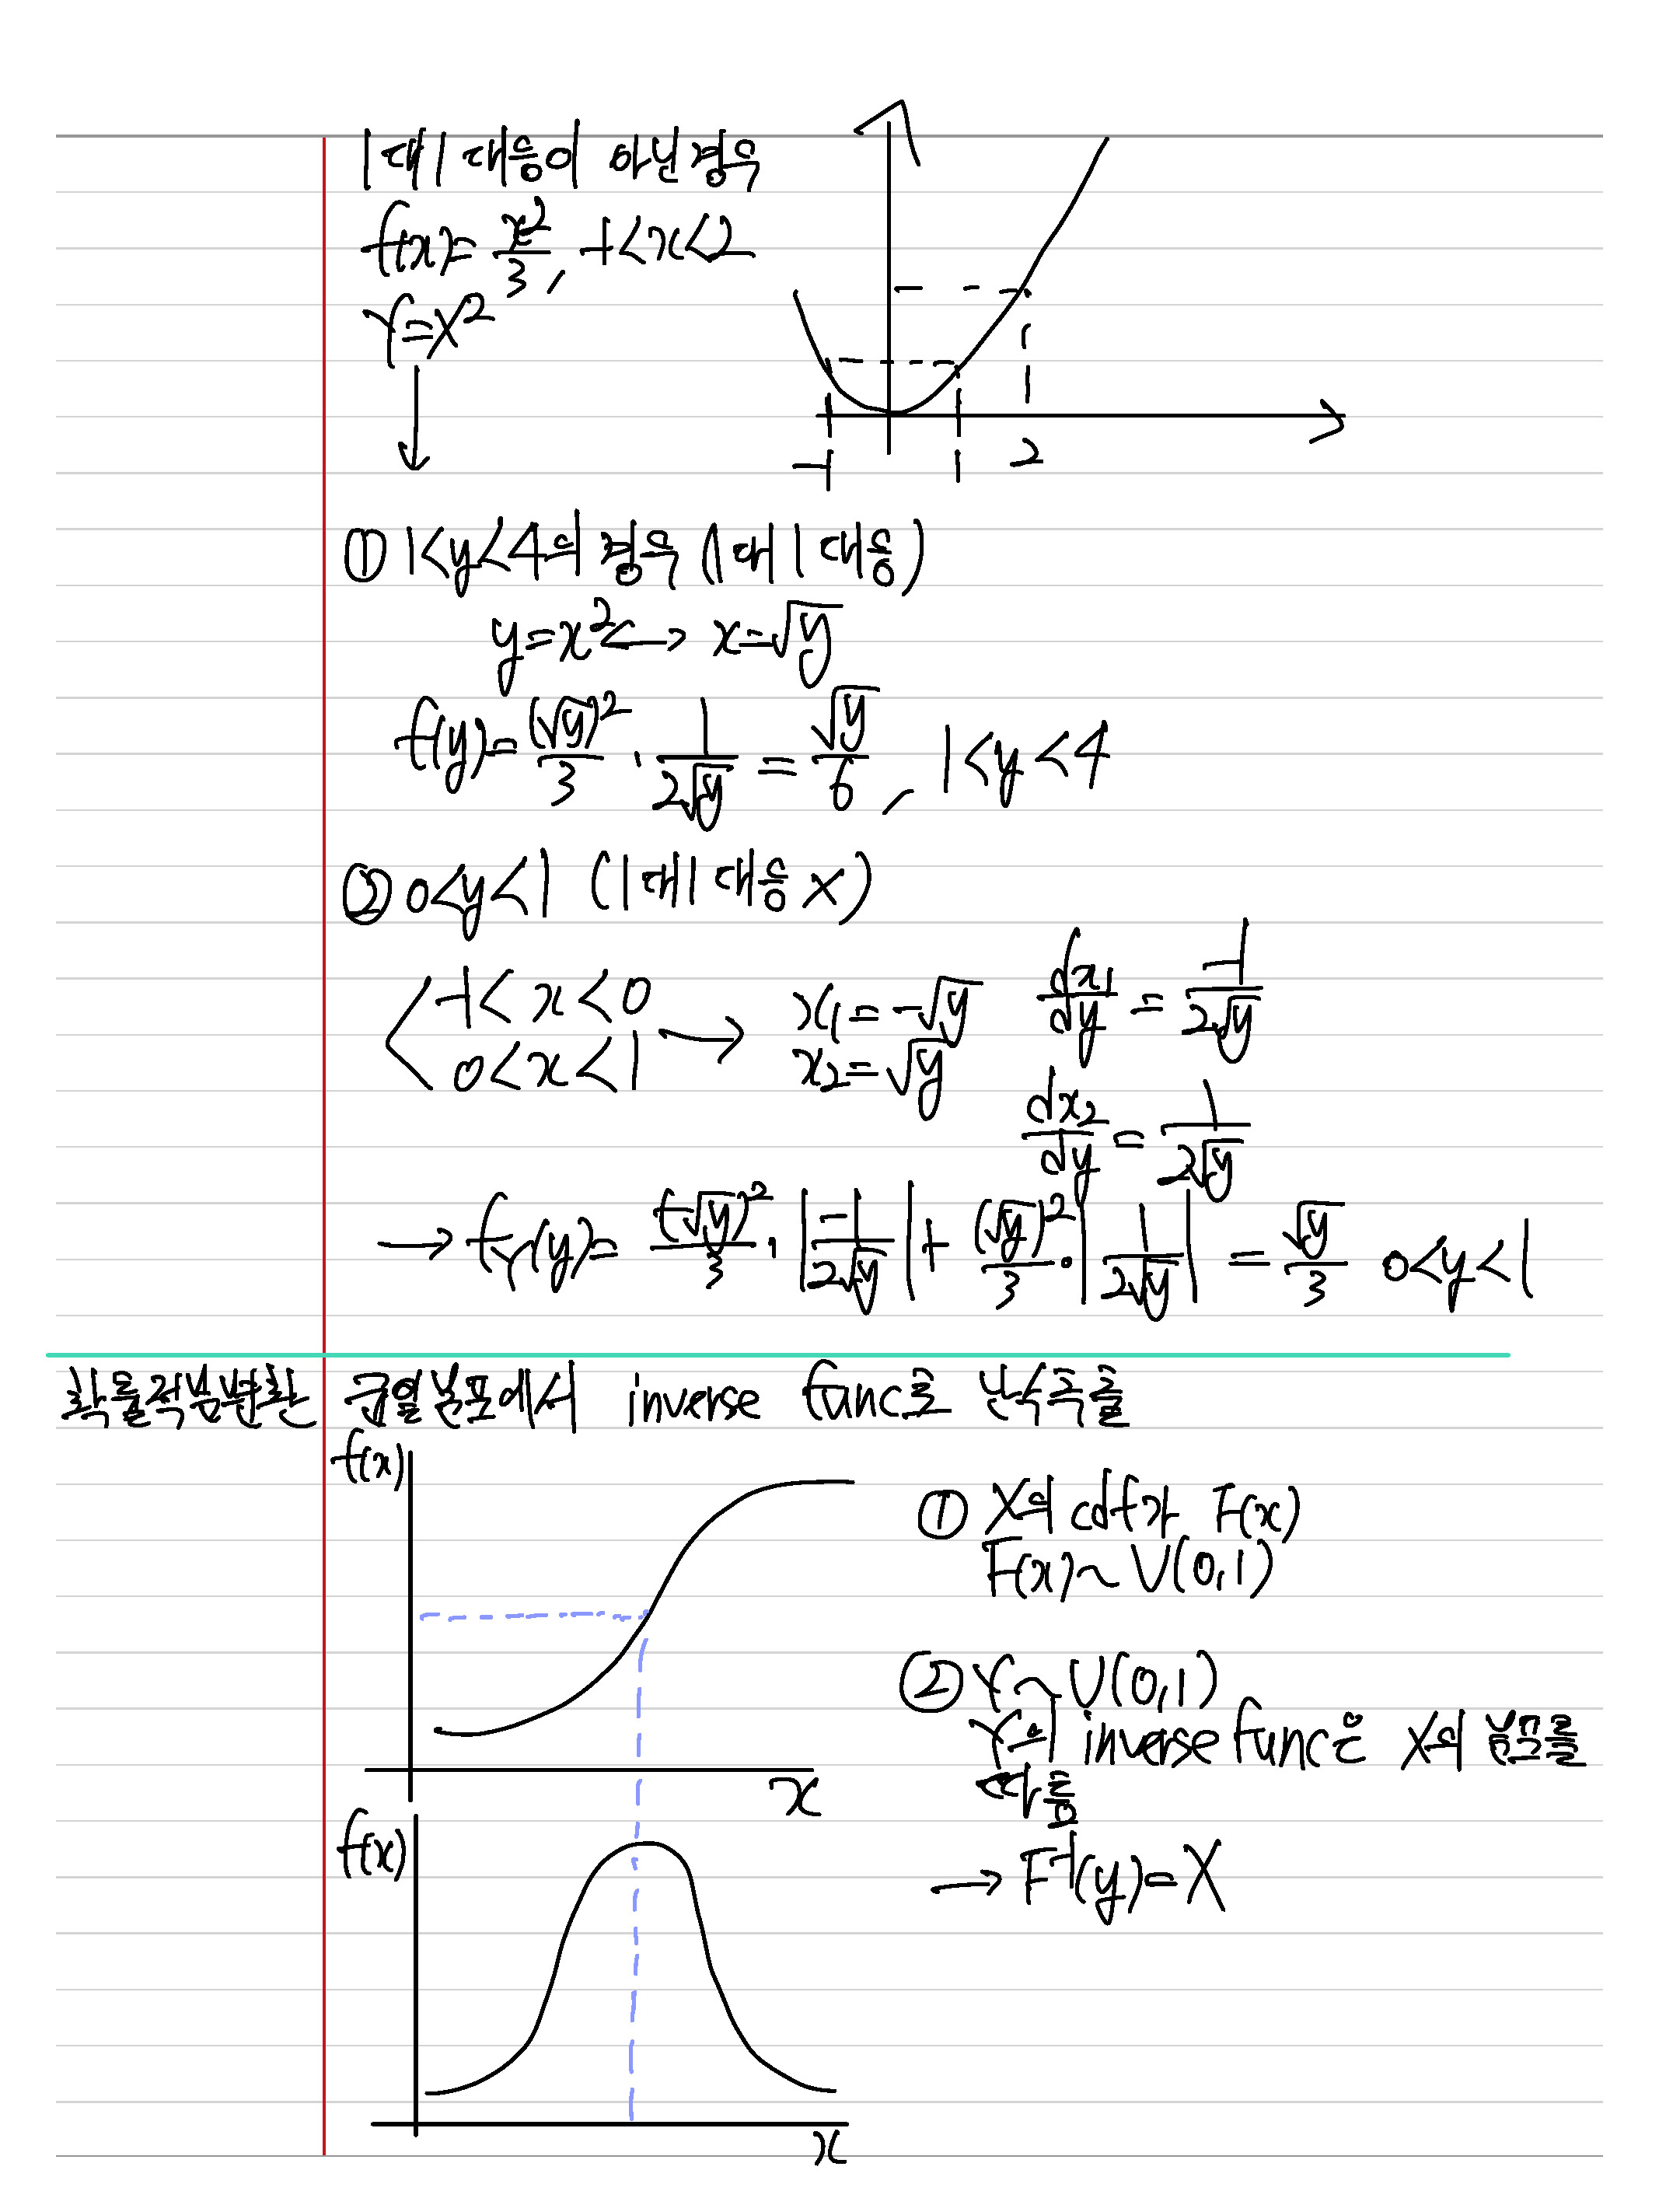 1대1 대응이 아닌경우
f(x)=x²/3, -1<x<2
Y=X²
-1 1 2
① 1<y<4의 경우 (1대1대응)
y=x² ⟷ x=√y
f(y)=(√y)²/3 · 1/2√y = √y/6, 1<y<4
② 0<y<1 (1대1대응 X)
-1<x<0 → x₁=-√y dx₁/dy = -1/2√y
0<x<1 x₂=√y
dx₂/dy = 1/2√y
→ f_Y(y)= (-√y)²/3 · |-1/2√y| + (√y)²/3 · |1/2√y| = √y/3 0<y<1
확률적분변환 균일분포에서 inverse func로 난수추출
f(x)
① X의 cdf가 F(x)
F(x)~U(0,1)
② Y~U(0,1)
Y의 inverse func은 X의 분포를
따름
x
f(x)
→ F⁻¹(y)=X
x